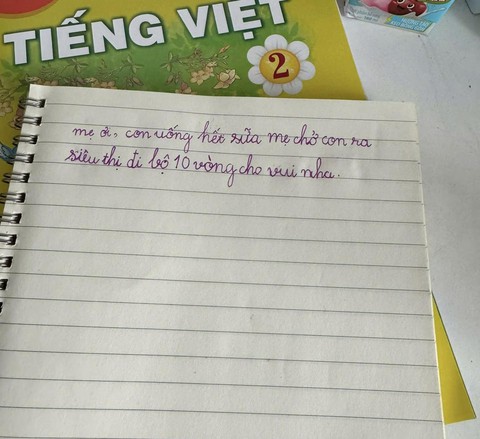 TIẾNG VIỆT
2
mẹ ơi, con uống hết sữa mẹ chở con ra
siêu thị đi bộ 10 vòng cho vui nha.